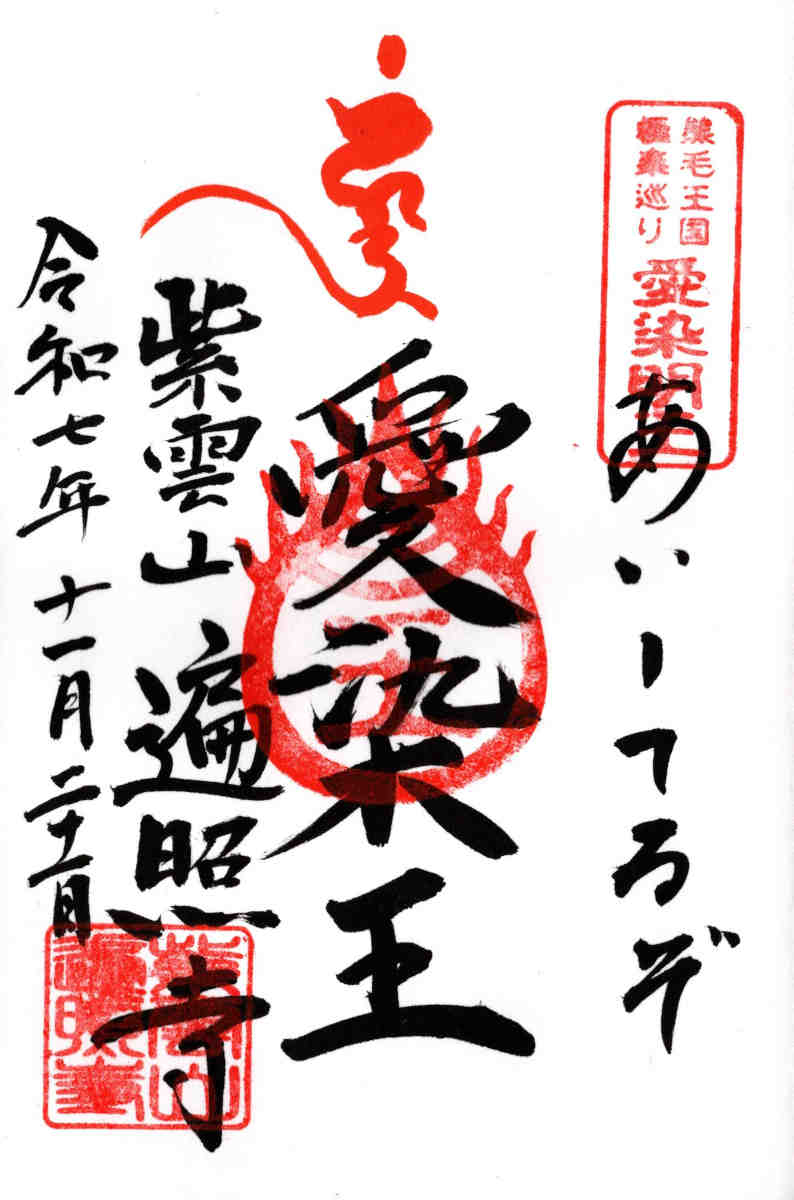 熊毛王国
極楽巡り
愛染明王
あいーてるぞ
愛染王
紫雲山 遍照寺
令和七年 十一月 二十一日